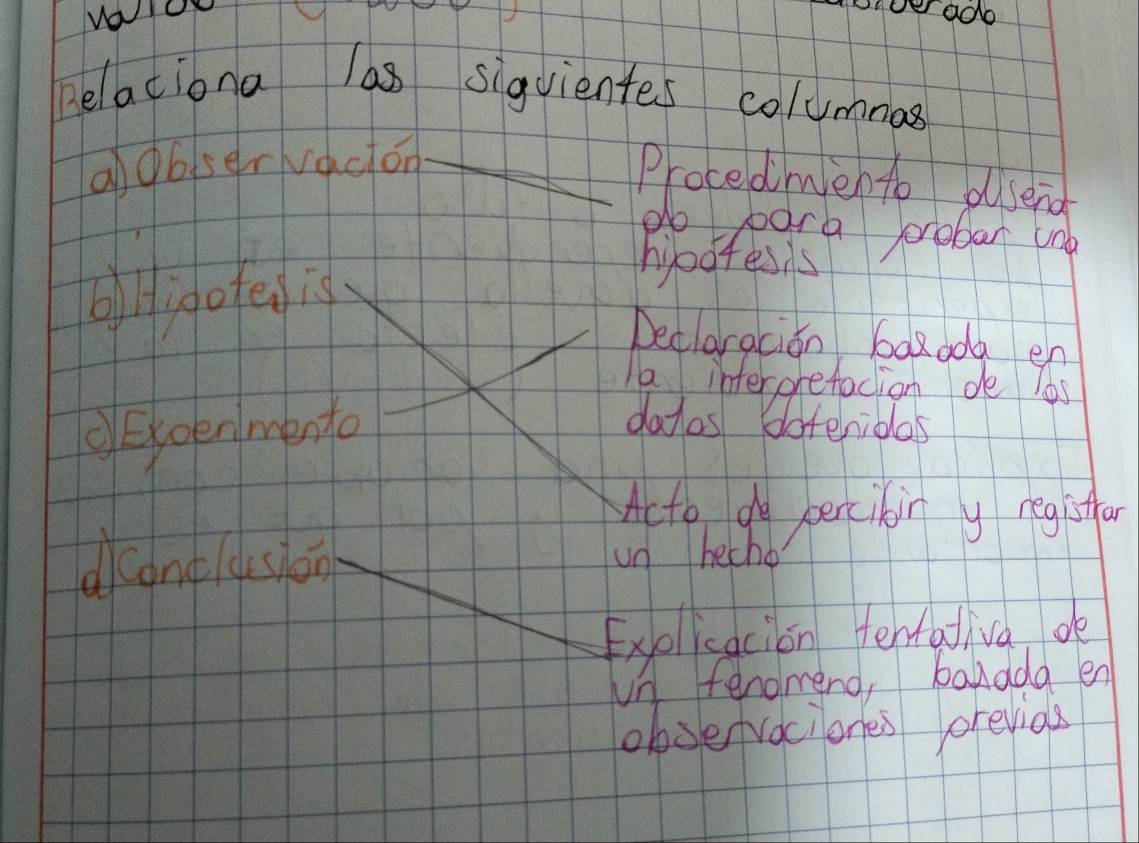 Relaciona las siguientes columnas
a) Observación
Procedimiento diseña
do para probar una
hipótesis
b) Hipotesis
Declaración basada en
la interpretacion de los
datos obtenidos
c) Experimento
Acto de percibir y registrar
un hecho
d) Conclusión
Explicación tentativa de
un fenomeno, basada en
observaciones previas